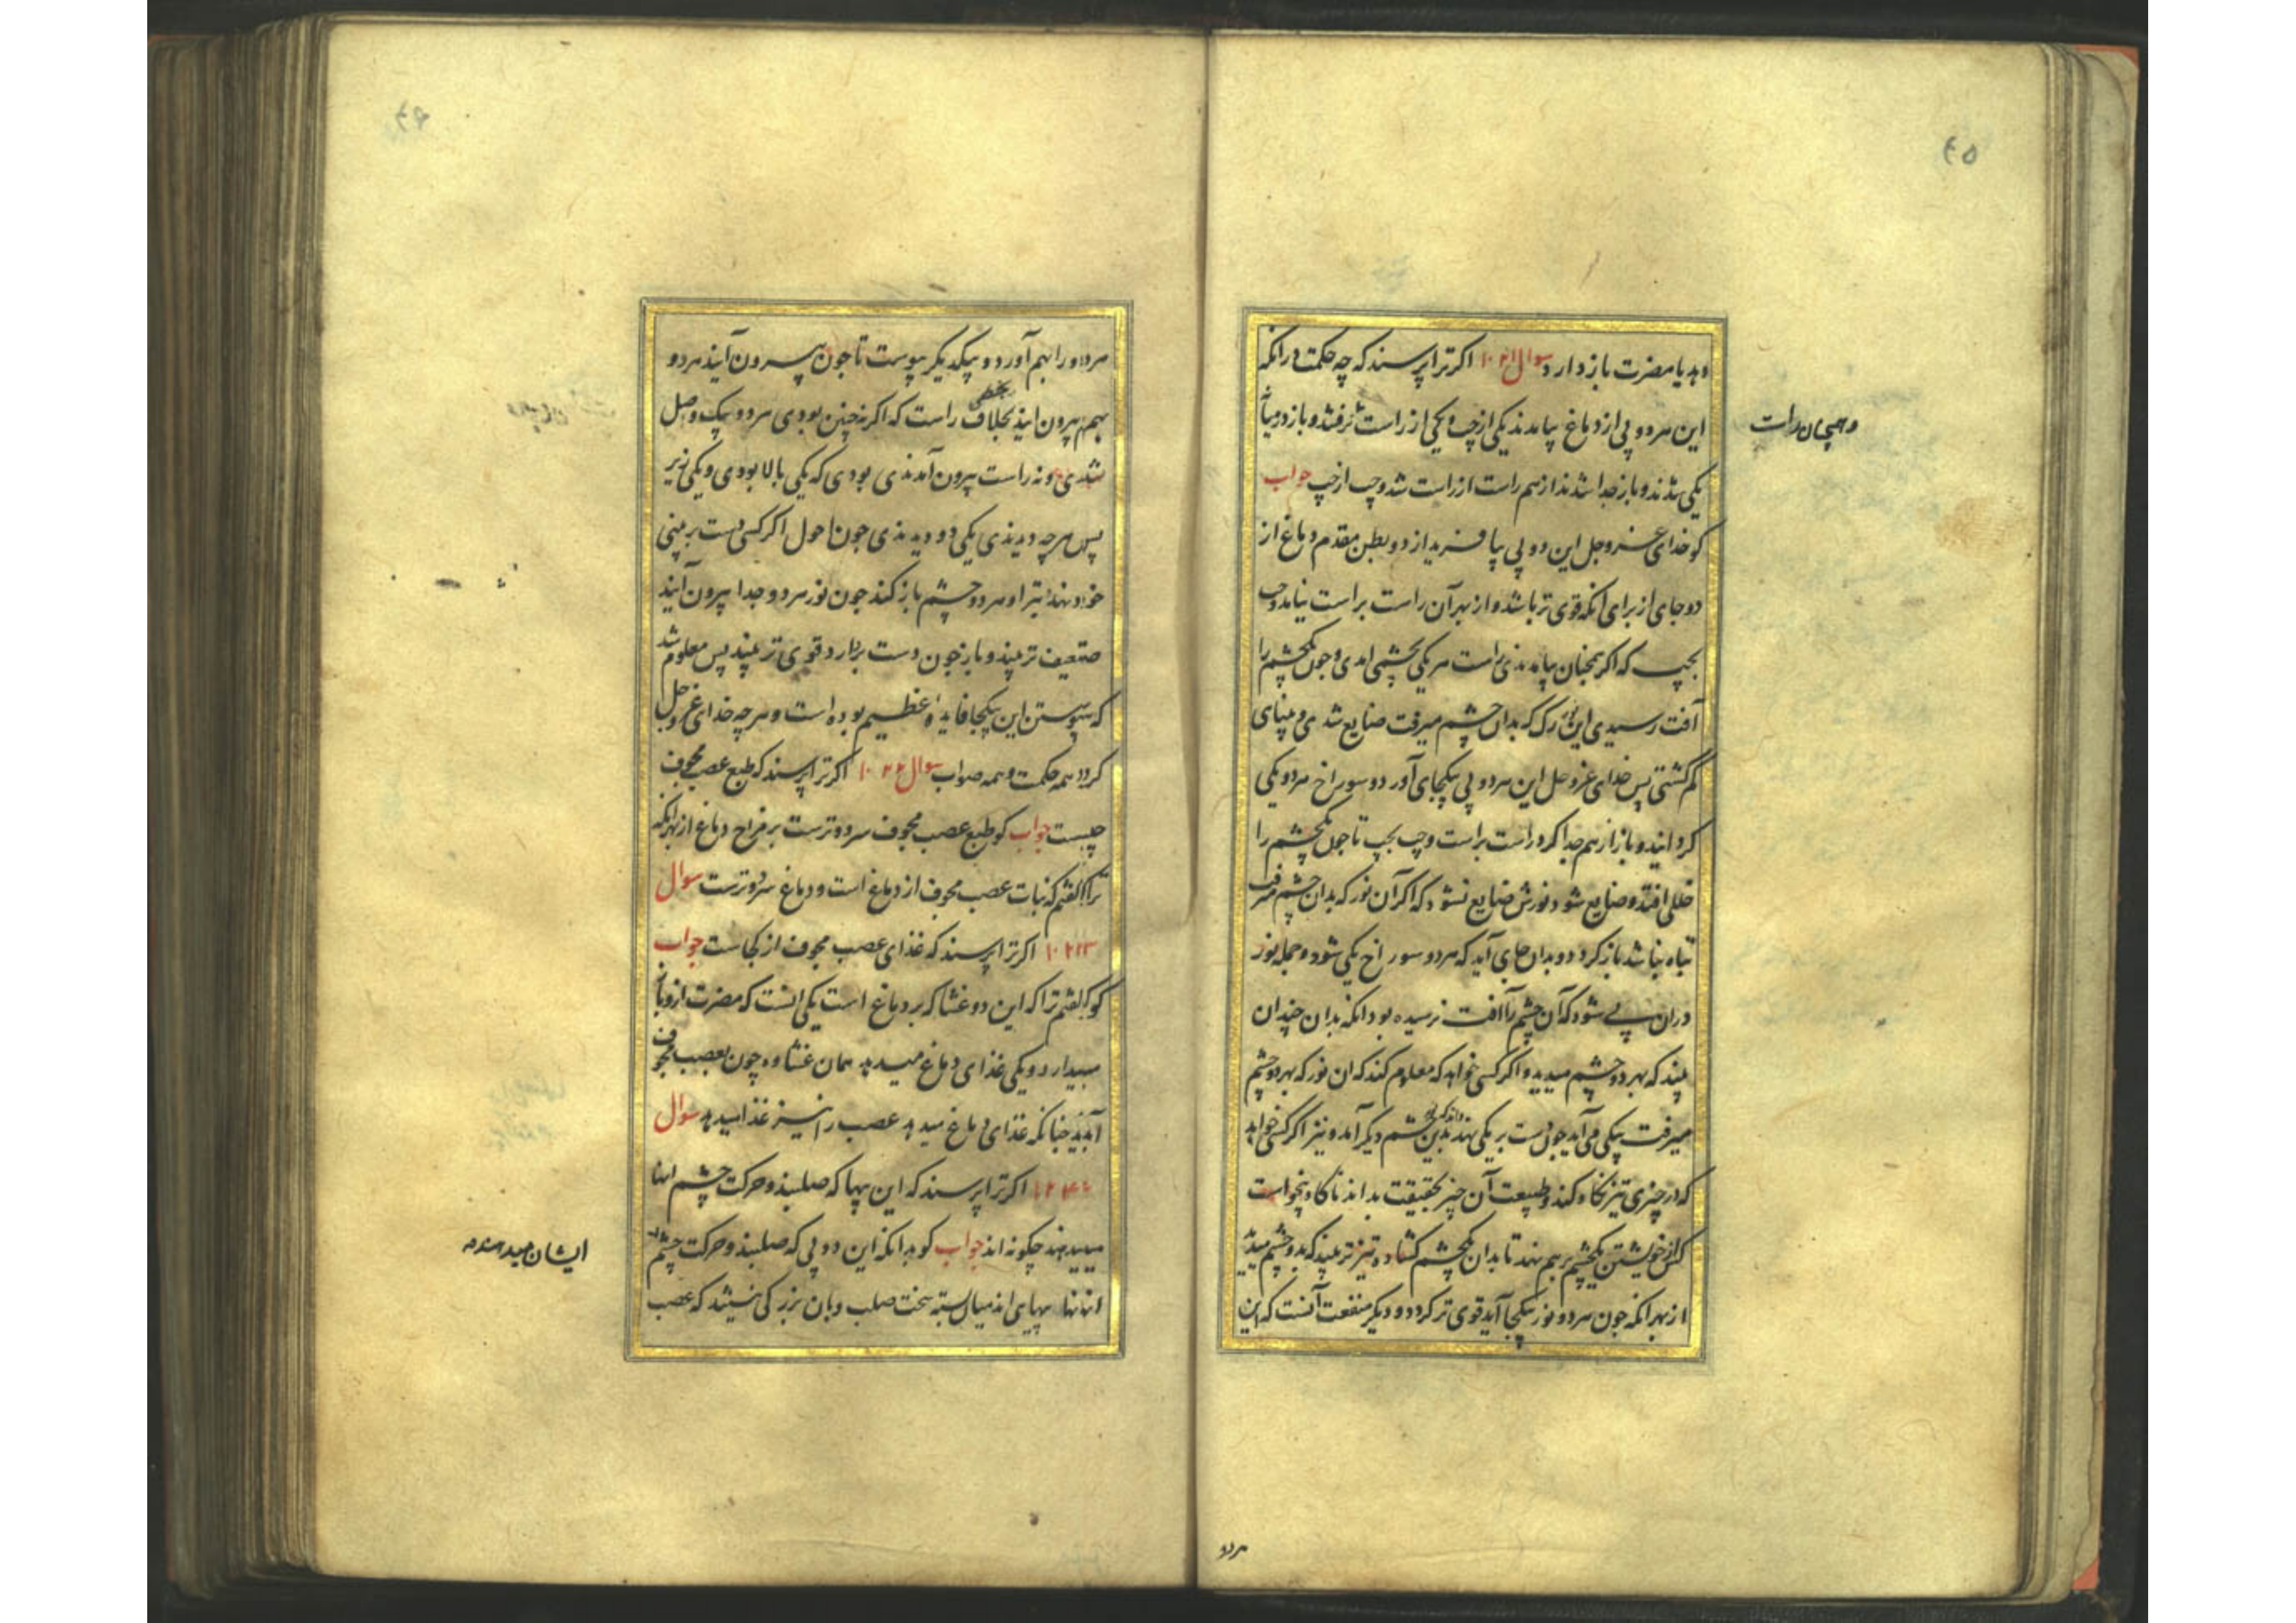 دهد یا مضرت باز دارد سوال ۱۰۲۱ اکر ترا پرسند که چه حکمت در انکه
این هر دو پی از دماغ بیامدند یکی از چپ و یکی از راست برفتند و باز درمیان
وهمچنان راست
یکی شدند و باز جدا شدند از هم راست از راست شد و چپ از چپ جواب
کو خدای عز و جل این دو پی بیافرید از دو بطن مقدم دماغ از
دو جای از برای انکه قوی تر باشد و از بهر آن راست براست نیامد و چپ
بچپ که اکر همچنان بیامدندی راست هر یکی بچشمی امدی و چون یکچشم را
آفت رسیدی این نور رک که بدان چشم میرفت ضایع شدی و بینای
کم کشتی پس خدای عز و جل این هر دو پی بیکجای آورد و سوراخ هر دو یکی
کردانید و باز از هم جدا کرد راست براست و چپ بچپ تا چون یکچشم را
خللی افتد و ضایع شود نورش ضایع نشود که اکر آن نور که بدان چشم میرفت
تباه نباشد باز کردد و بدان جای آید که هر دو سوراخ یکی شود و جمله نور
دران پی شود که آن چشم را افت نرسیده بود انکه بدان چندان
بیند که بهر دو چشم میدید و اکر کسی خواهد که معلوم کند که ان نور که بهر دو چشم
میرفت بیکی می آید چون دست بر یکی نهد بدین چشم دیکر آمد و نیز اکر کسی خواهد
که در چیزی تیز نکاه کند و طبیعت آن چیز بحقیقت بداند ناکاه بنخواست
کس از خویشتن یکچشم بر هم نهد تا بدان یکچشم کشاده تیز تر بیند که بدو چشم میدید
از بهر انکه چون هر دو نور بیکجا آید قوی تر کردد و دیکر منفعت آنست که این
هردو
هر دو را بهم آورد و بیکدیکر پیوست تا چون بیرون آیند هر دو
بهم بیرون ایند بخلاف بخطی راست که اکر نه چنین بودی هر دو بیک وصل
شدی و نه راست بیرون آمدندی بودی که یکی بالا بودی و یکی زیر
پس هر چه دیدندی یکی دو دیدندی چون احول اکر کسی دست بر بینی
خود نهد و هر دو چشم باز کند چون نور هر دو جدا بیرون آیند
ضعیف تر بیند و باز چون دست بردارد قوی تر بیند پس معلوم شد
که پیوستن این بیکجا فایده عظیم بوده است و هر چه خدای عز و جل
کرد همه حکمت و همه صواب سوال ۱۰۲۲ اکر ترا پرسند که طبع عصب مجوف
چیست جواب کو طبع عصب مجوف سرد و ترست بر مزاج دماغ از بهر انکه
ترا کفتم که نبات عصب مجوف از دماغ است و دماغ سرد و ترست سوال
۱۰۲۳ اکر ترا پرسند که غذای عصب مجوف از کجاست جواب
کو کفتم ترا که این دو غشا که بر دماغ است یکی انست که مضرت ازو باز
میدارد و یکی غذای دماغ میدهد همان غشاوه چون بعصب مجوف
آیند چنانکه غذای دماغ میدهد عصب را نیز غذا میدهد سوال
۱۰۲۴ اکر ترا پرسند که این پیها که صلبند و حرکت چشم اینها
میدهند چکونه اند جواب کو بدانکه این دو پی که صلبند و حرکت چشم از
ایشان میدهند
انانند پیهایی اند میان بسته سخت صلب و بان بزرکی نیستند که عصب